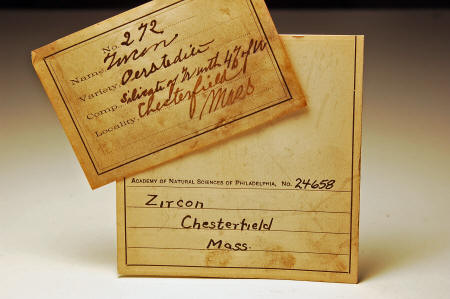 No. 272
Name, Zircon
Variety, Oerstedite
Comp., Silicate of
Locality, Chesterfield
Mass
ACADEMY OF NATURAL SCIENCES OF PHILADELPHIA, NO. 24658
Zircon
Chesterfield
Mass.